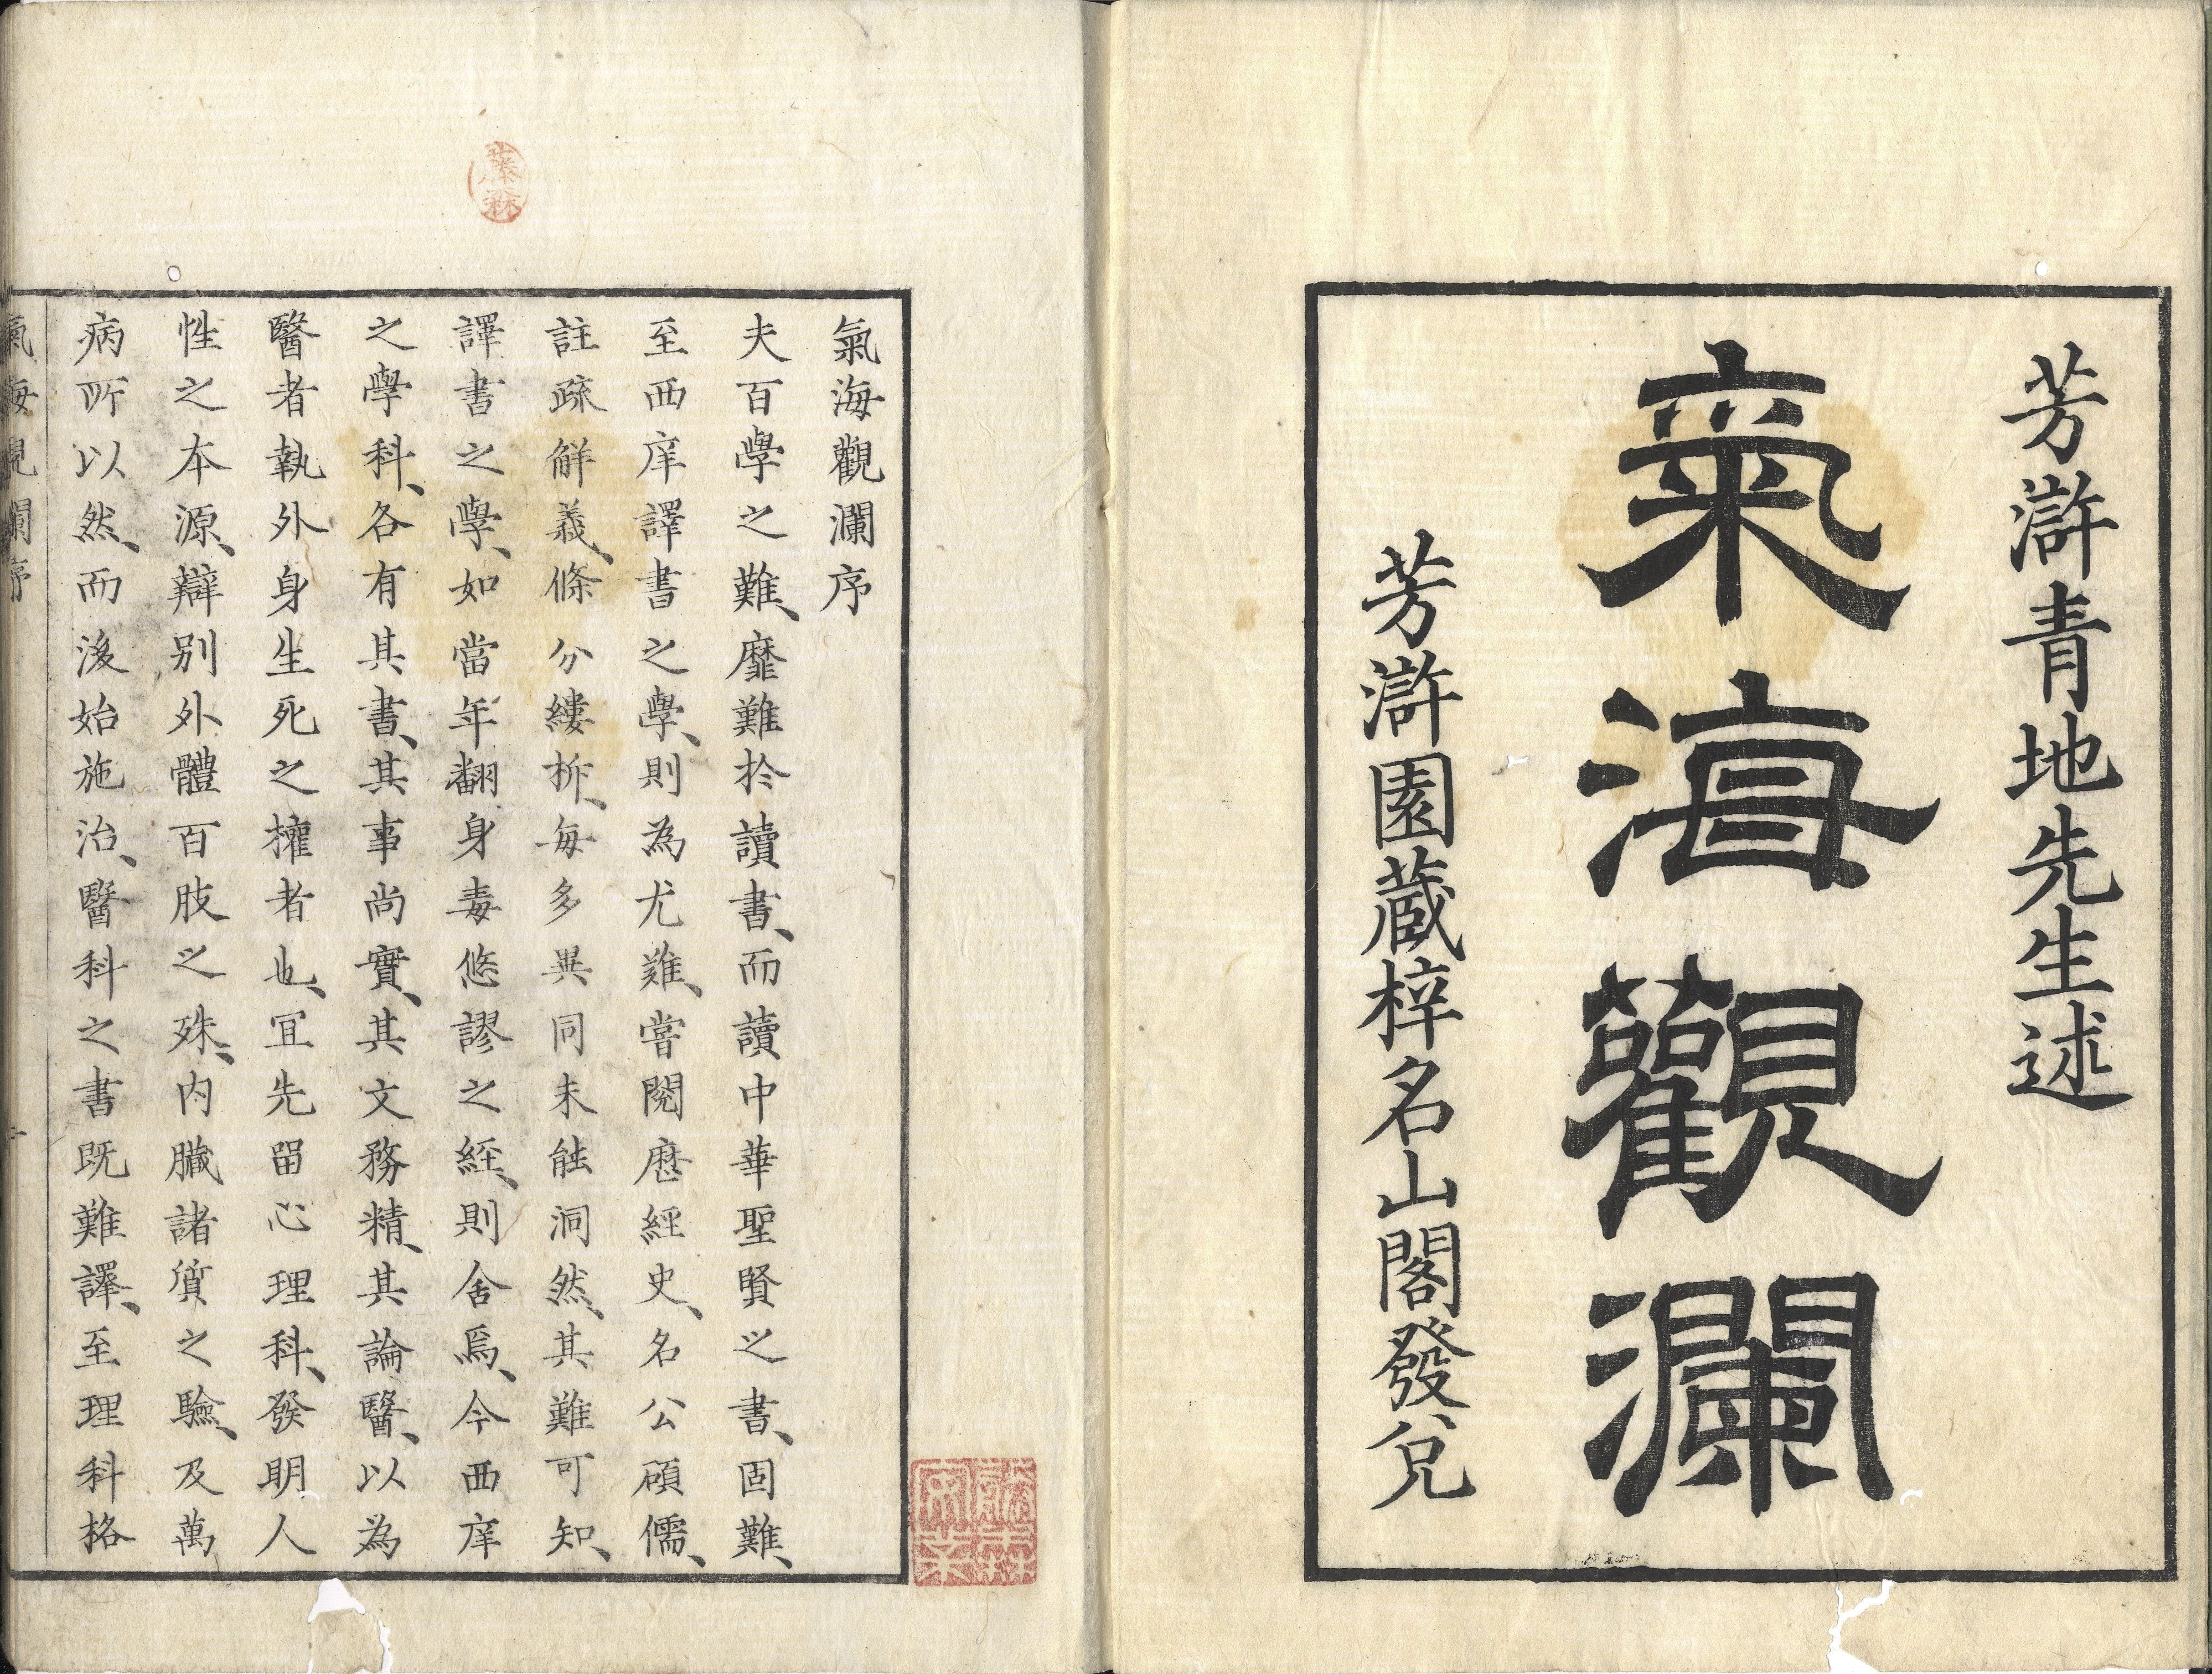 芳滸青地先生述
氣海觀瀾
芳滸園蔵梓名山閣發兌
氣海觀瀾序
夫百學之難、靡難於讀書、而讀中華聖賢之書、固難、
至西庠譯書之學、則為尤難、嘗閱歴經史、名公碩儒、
註疏解義、條分縷柝、毎多異同未能洞然、其難可知、
譯書之學、如當年翻身毒悠謬之經、則舍焉、今西庠
之學科、各有其書、其事尚實、其文務精、其論醫、以為
醫者執外身生死之權者也、冝先留心理科、發明人
性之本源、辯別外體百肢之殊、内臓諸質之驗、及萬
病所以然、而後始施治、醫科之書既難譯、至理科格
氣海觀瀾序
一
藤森